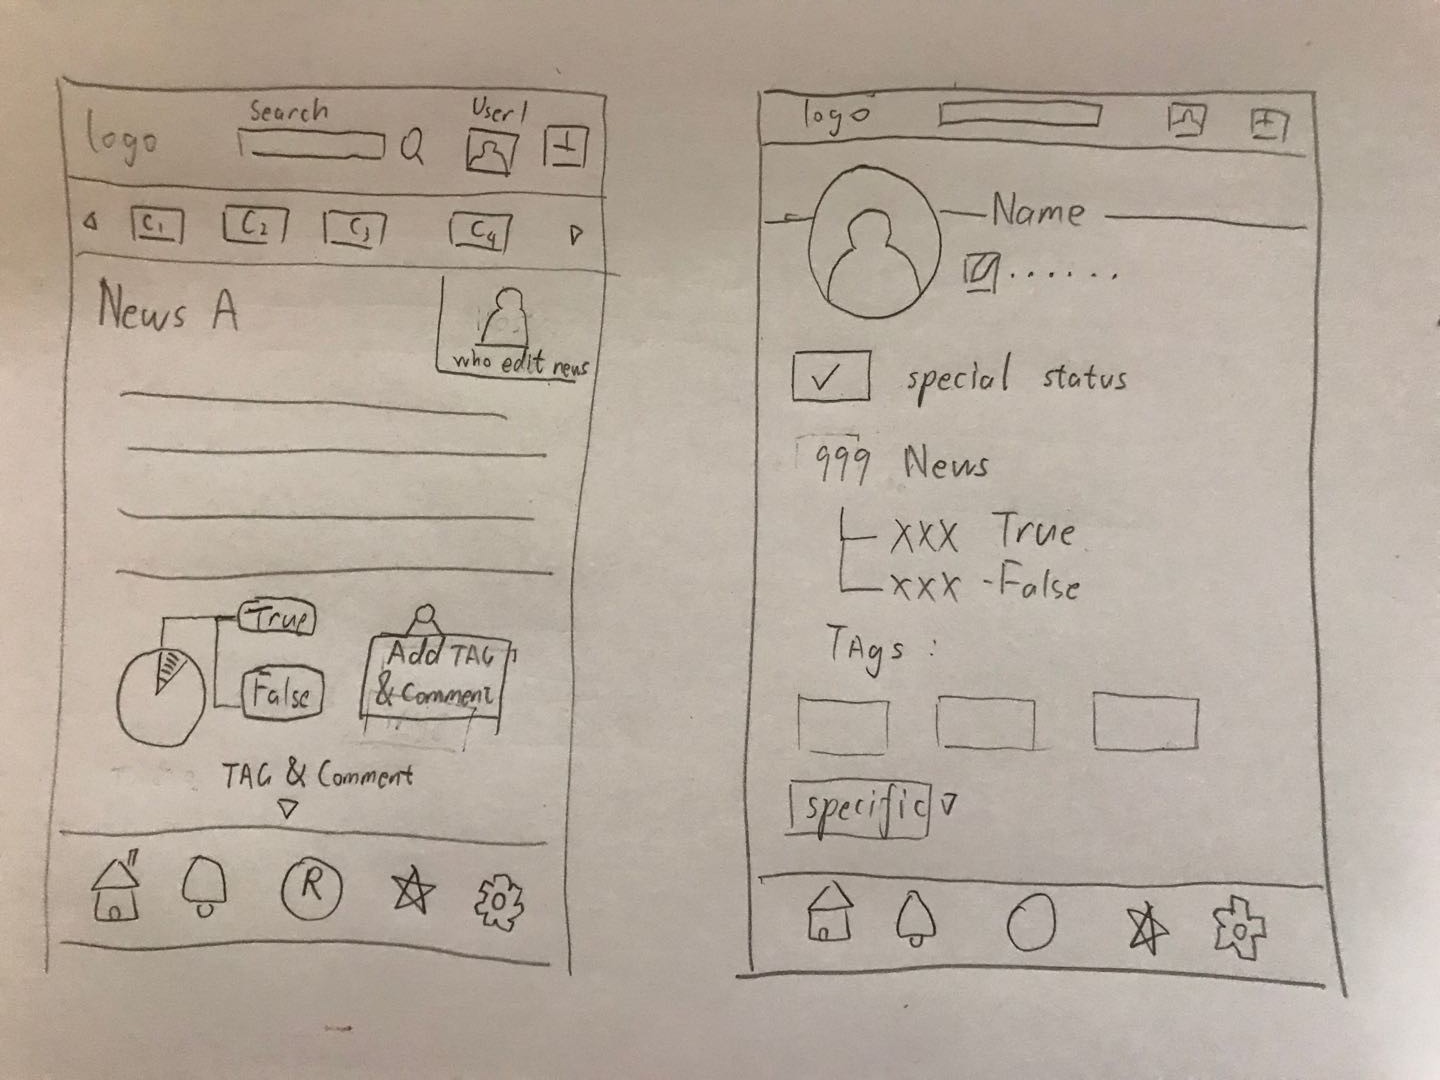 Search
User 1
logo
C1 C2 C3 C4
News A
who edit news
True
False
Add TAG
& Comment
TAG & Comment
R
logo
Name
special status
999 News
XXX True
XXX - False
TAgs :
specific